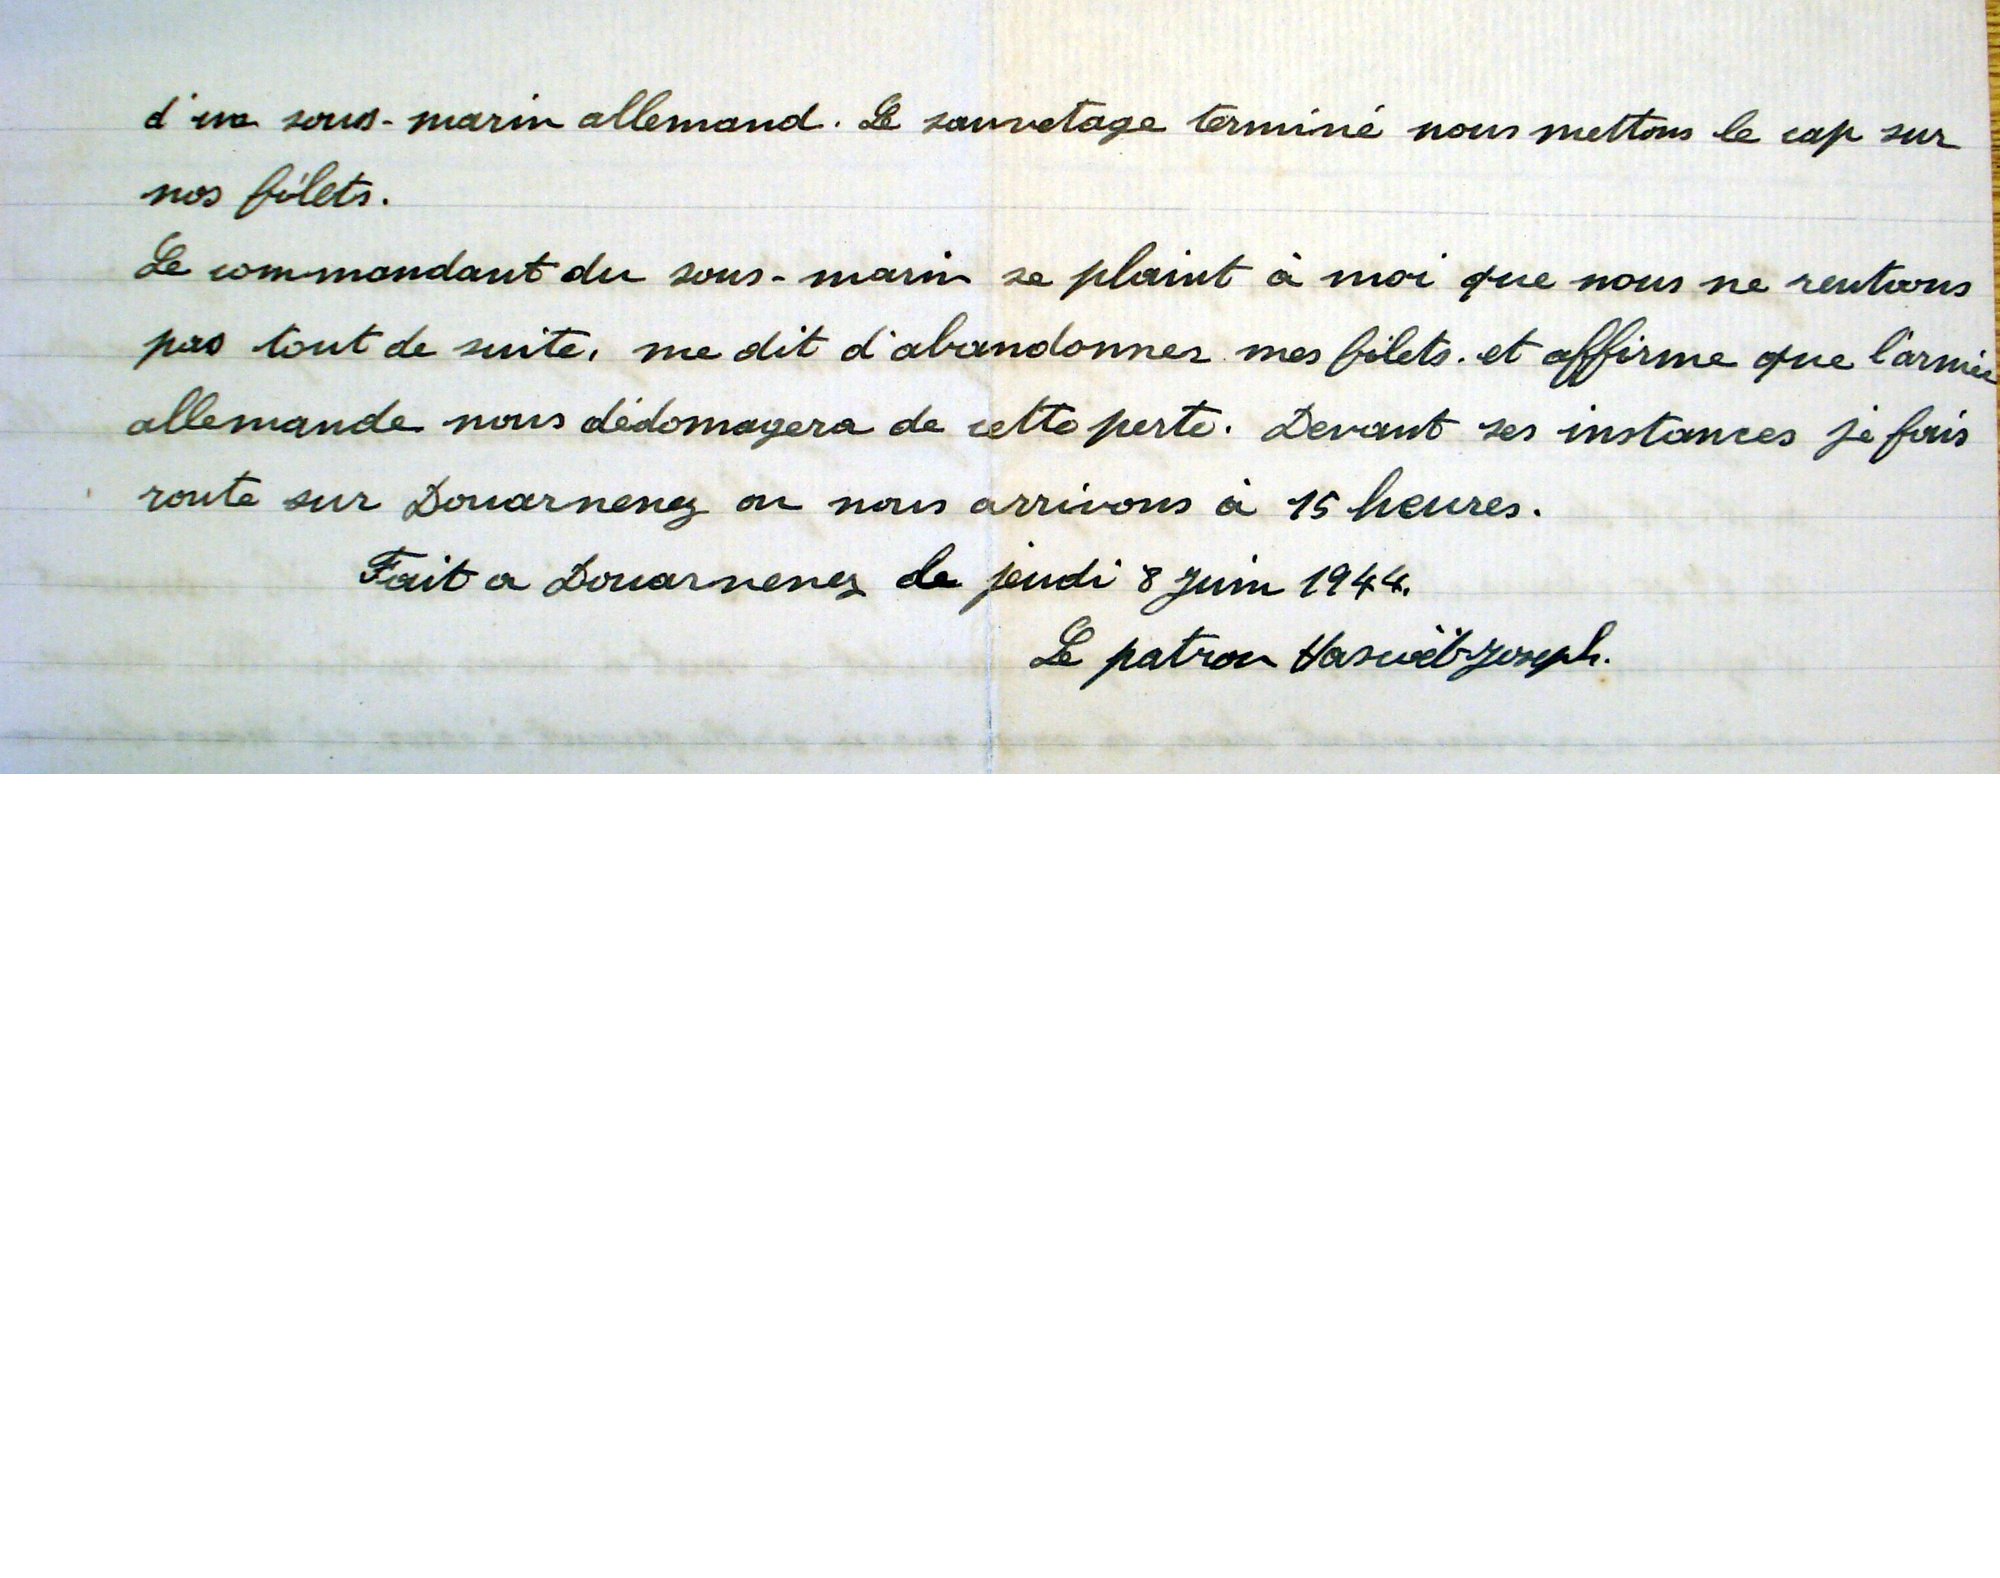 d'un sous-marin allemand. Le sauvetage terminé nous mettons le cap sur
nos filets.
Le commandant du sous-marin se plaint à moi que nous ne rentrons
pas tout de suite, me dit d'abandonner mes filets. et affirme que l'armée
allemande nous dédomagera de cette perte. Devant ses instances je fais
route sur Douarnenez ou nous arrivons à 15 heures.
Fait a Douarnenez le jeudi 8 Juin 1944.
Le patron Joseph.